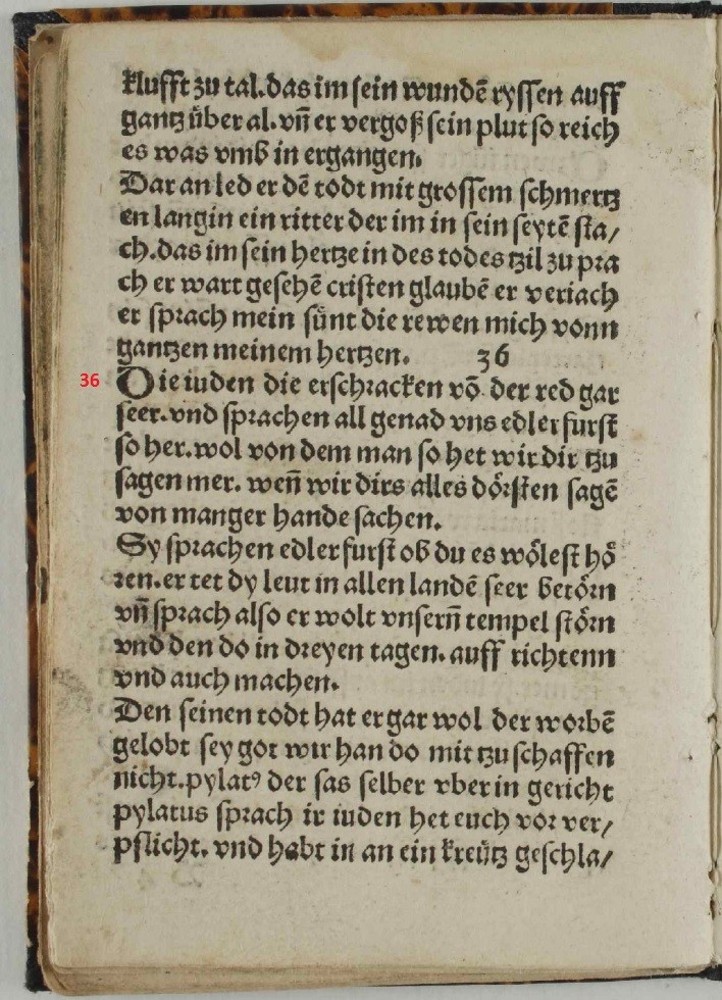 klufft zu tal.das im sein wundē ryssen auff
gantz über al.vn̄ er vergoß sein plut so reich
es was vmb in ergangen.
Dar an led er dē todt mit grossem schmertz
en langin ein ritter der im in sein seytē sta/
ch.das im sein hertze in des todes tzil zu pra
ch er wart gesehē cristen glaubē er veriach
er sprach mein sünt die rewen mich vonn
gantzen meinem hertzen. 36
36 Die iuden die erschracken vō der red gar
seer.vnd sprachen all genad vns edler furst
so her.wol von dem man so het wir dir tzu
sagen mer. wen̄ wir dirs alles dörsten sagē
von manger hande sachen.
Sy sprachen edler furst ob du es wölest hö
ren.er tet dy leut in allen landē seer betörn
vn̄ sprach also er wolt vnsern̄ tempel störn
vnd den do in dreyen tagen.auff richtenn
vnd auch machen.
Den seinen todt hat er gar wol der worbē
gelobt sey got wir han do mit tzu schaffen
nicht.pylatꝰ der sas selber vber in gericht
pylatus sprach ir iuden het euch vor ver/
pflicht. vnd habt in an ein kreütz geschla/